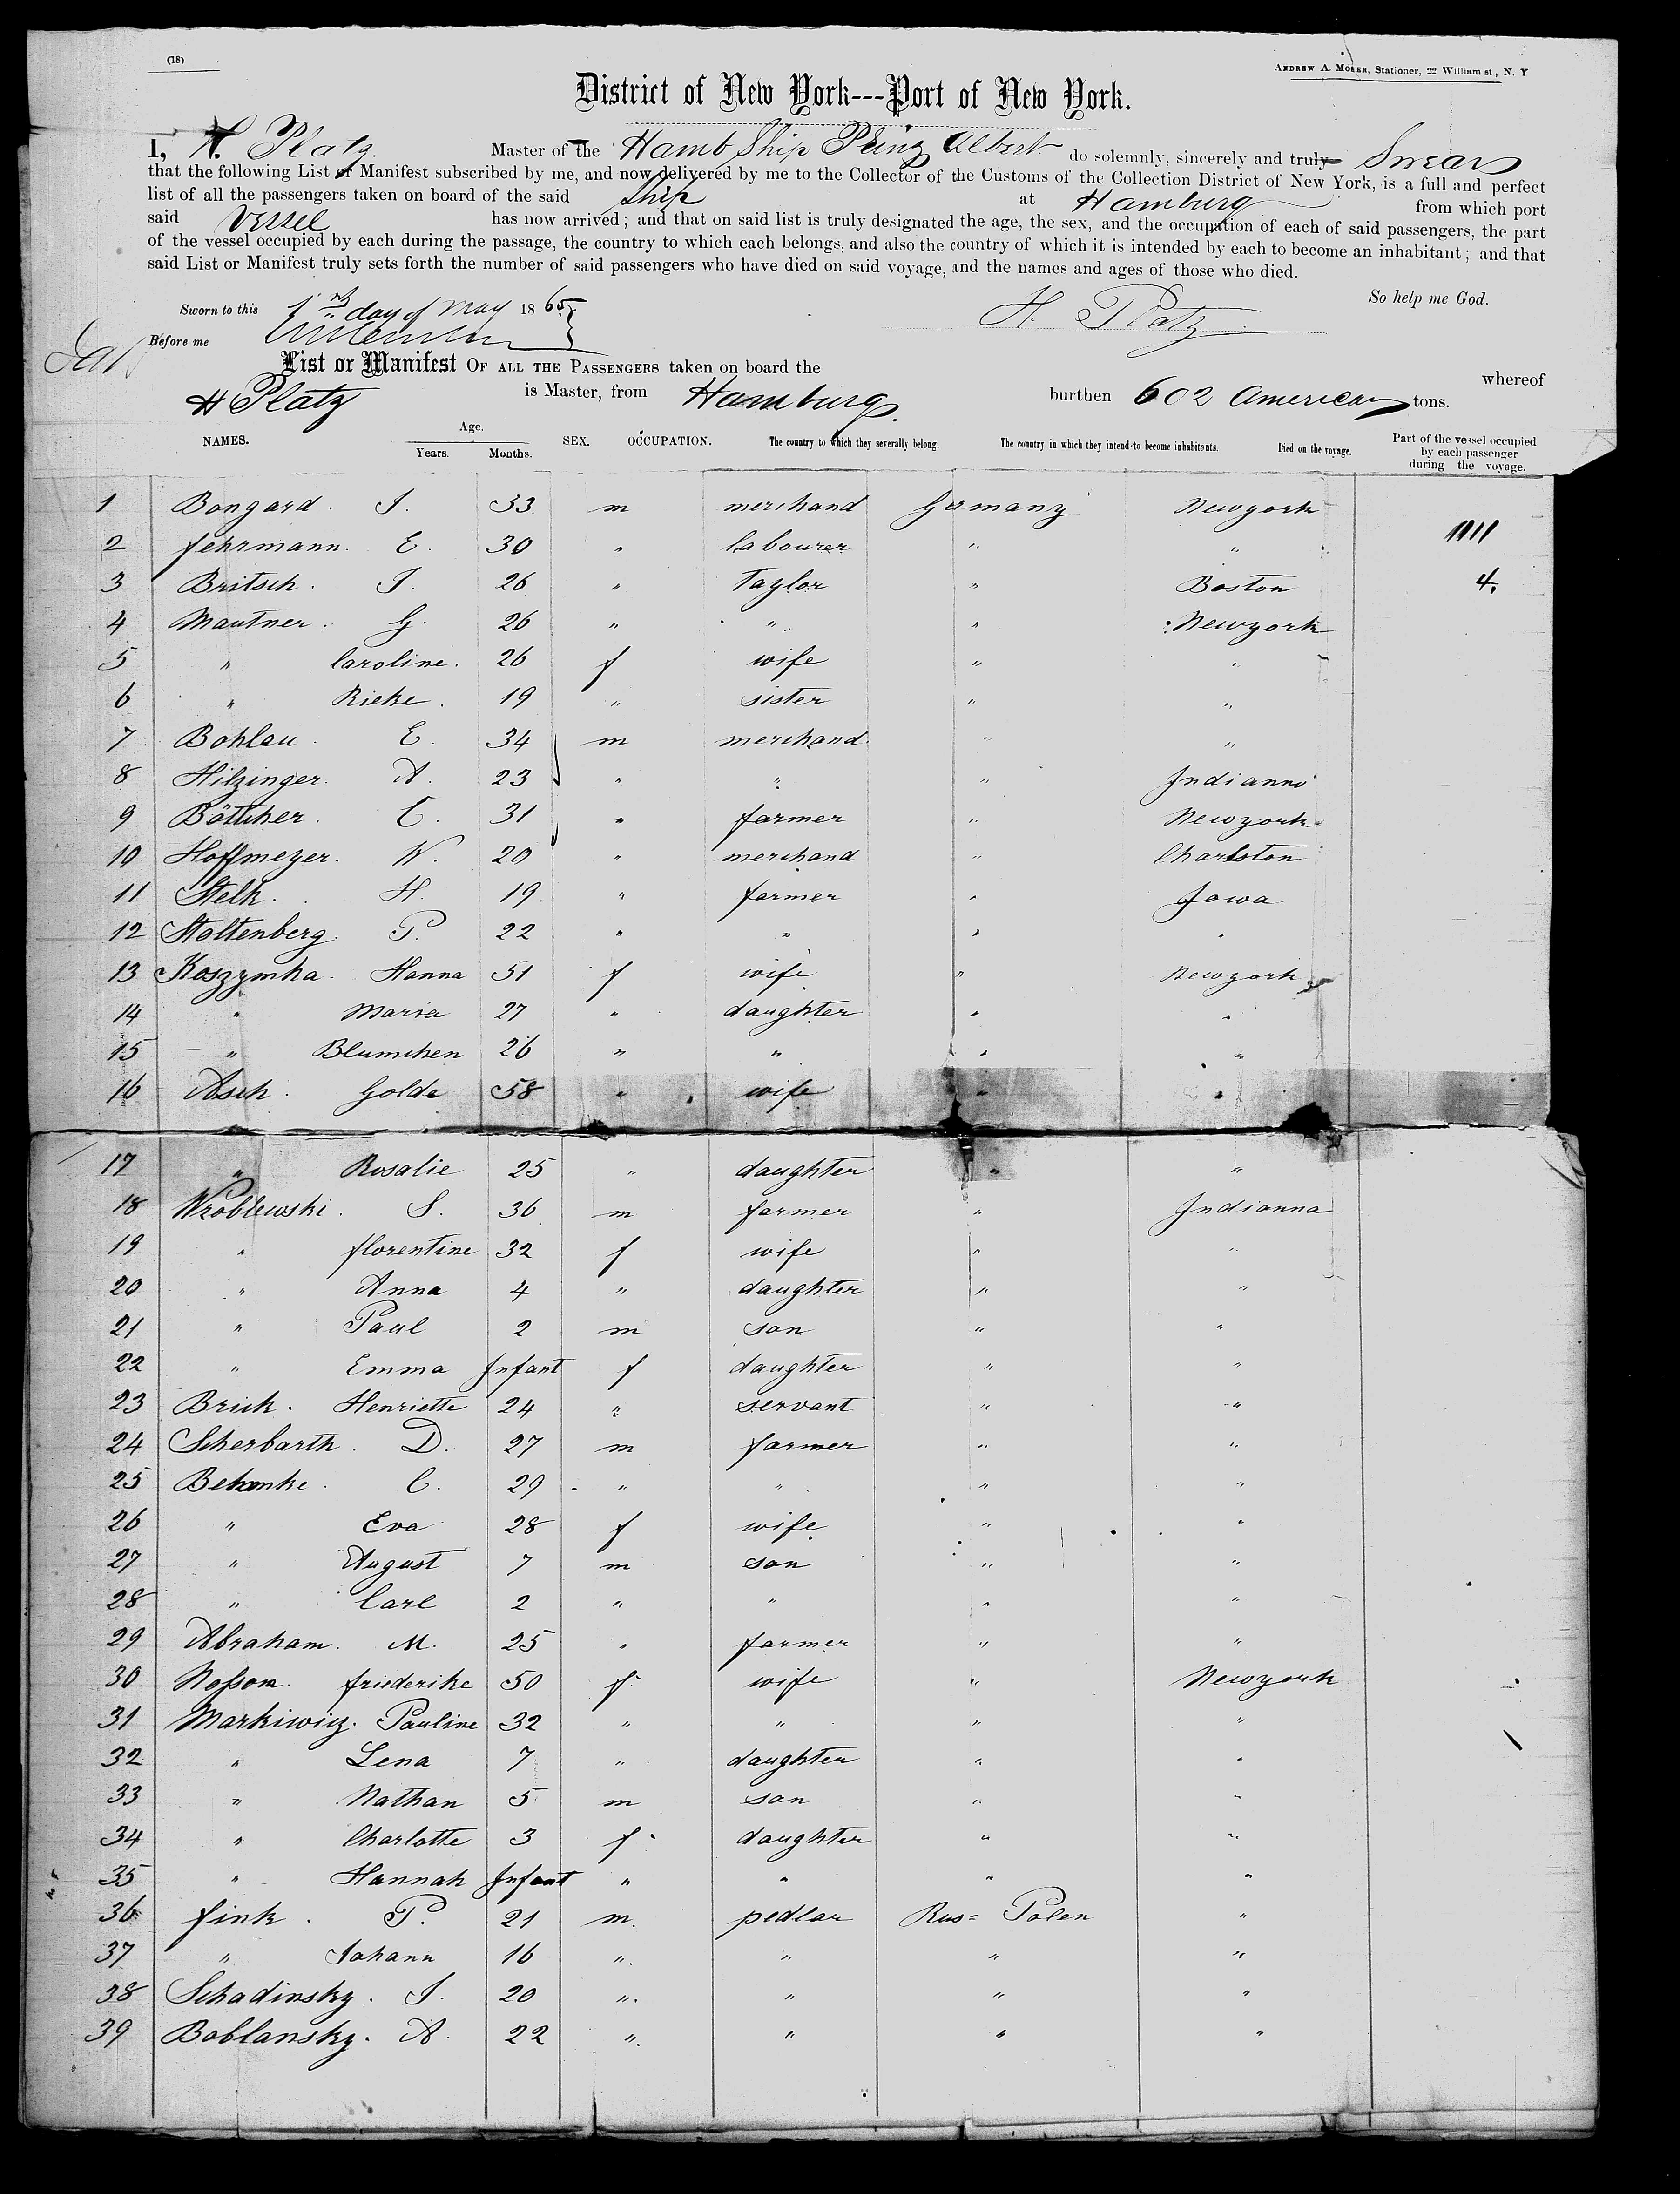 (18)
ANDREW A. MOLER, Stationer, 22 William st, N. Y
District of New York---Port of New York.
I, H. Platz Master of the Hamb Ship Prinz Albert do solemnly, sincerely and truly Swear
that the following List or Manifest subscribed by me, and now delivered by me to the Collector of the Customs of the Collection District of New York, is a full and perfect
list of all the passengers taken on board of the said Ship at Hamburg from which port
said Vessel has now arrived; and that on said list is truly designated the age, the sex, and the occupation of each of said passengers, the part
of the vessel occupied by each during the passage, the country to which each belongs, and also the country of which it is intended by each to become an inhabitant; and that
said List or Manifest truly sets forth the number of said passengers who have died on said voyage, and the names and ages of those who died.
So help me God.
Sworn to this 1st day of May 1865
H. Platz
Before me
List or Manifest OF ALL THE PASSENGERS taken on board the whereof
H Platz is Master, from Hamburg. burthen 602 American tons.
NAMES. Age. Years. Months. SEX. OCCUPATION. The country to which they severally belong. The country in which they intend to become inhabitants. Died on the voyage. Part of the vessel occupied by each passenger during the voyage.
1 Bongard. J. 33 m merchand Germany Newyork
2 fehrmann. E. 30 " labourer " " 1111
3 Britsch. J. 26 " Taylor " Boston 4.
4 Mautner. G. 26 " " " Newyork
5 " Caroline. 26 f wife " "
6 " Rieke. 19 " sister " "
7 Bohlau. E. 34 m merchand. " "
8 Hilzinger. A. 23 " " " Indianna
9 Böttcher. C. 31 " farmer " Newyork
10 Hoffmeyer. W. 20 " merchand " Charlston
11 Stelk. H. 19 " farmer " Jowa
12 Stoltenberg. P. 22 " " " "
13 Koszymka. Hanna 51 f wife " Newyork
14 " Maria 27 " daughter " "
15 " Blumchen 26 " " " "
16 Asch. Golde 58 " wife " "
17 " Rosalie 25 " daughter " "
18 Wroblewski. S. 36 m farmer " Indianna
19 " florentine 32 f wife " "
20 " Anna 4 " daughter " "
21 " Paul 2 m son " "
22 " Emma Infant f daughter " "
23 Brick. Henriette 24 " servant " "
24 Scherbarth. D. 27 m farmer " "
25 C. 29 " " " "
26 " Eva 28 f wife " "
27 " August 7 m son " "
28 " Carl 2 " " " "
29 Abraham. M. 25 " farmer " "
30 Nossom. friederike 50 f. wife " Newyork
31 Markiwicz. Pauline 32 " " " "
32 " Lena 7 " daughter " "
33 " Nathan 5 m son " "
34 " Charlotte 3 f. daughter " "
35 " Hannah Infant " " " "
36 fink. P. 21 m. pedlar Rus= Polen "
37 " Johann 16 " " " "
38 Schadinsky. J. 20 " " " "
39 Boblansky. A. 22 " " " "